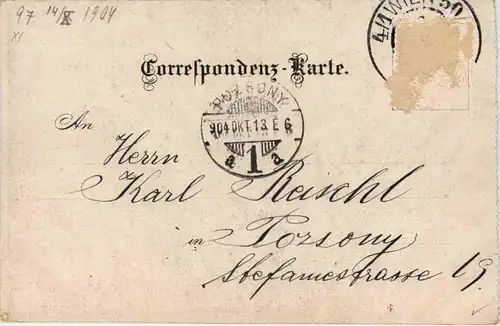 97 14/X 1904
XI
4/1 WIEN 50
Correspondenz-Karte.
POZSONY
904 OKT. 13. E 6
a 1 a
An
Herrn
Karl Reischl
in Pozsony
Stefaniestrasse 19.